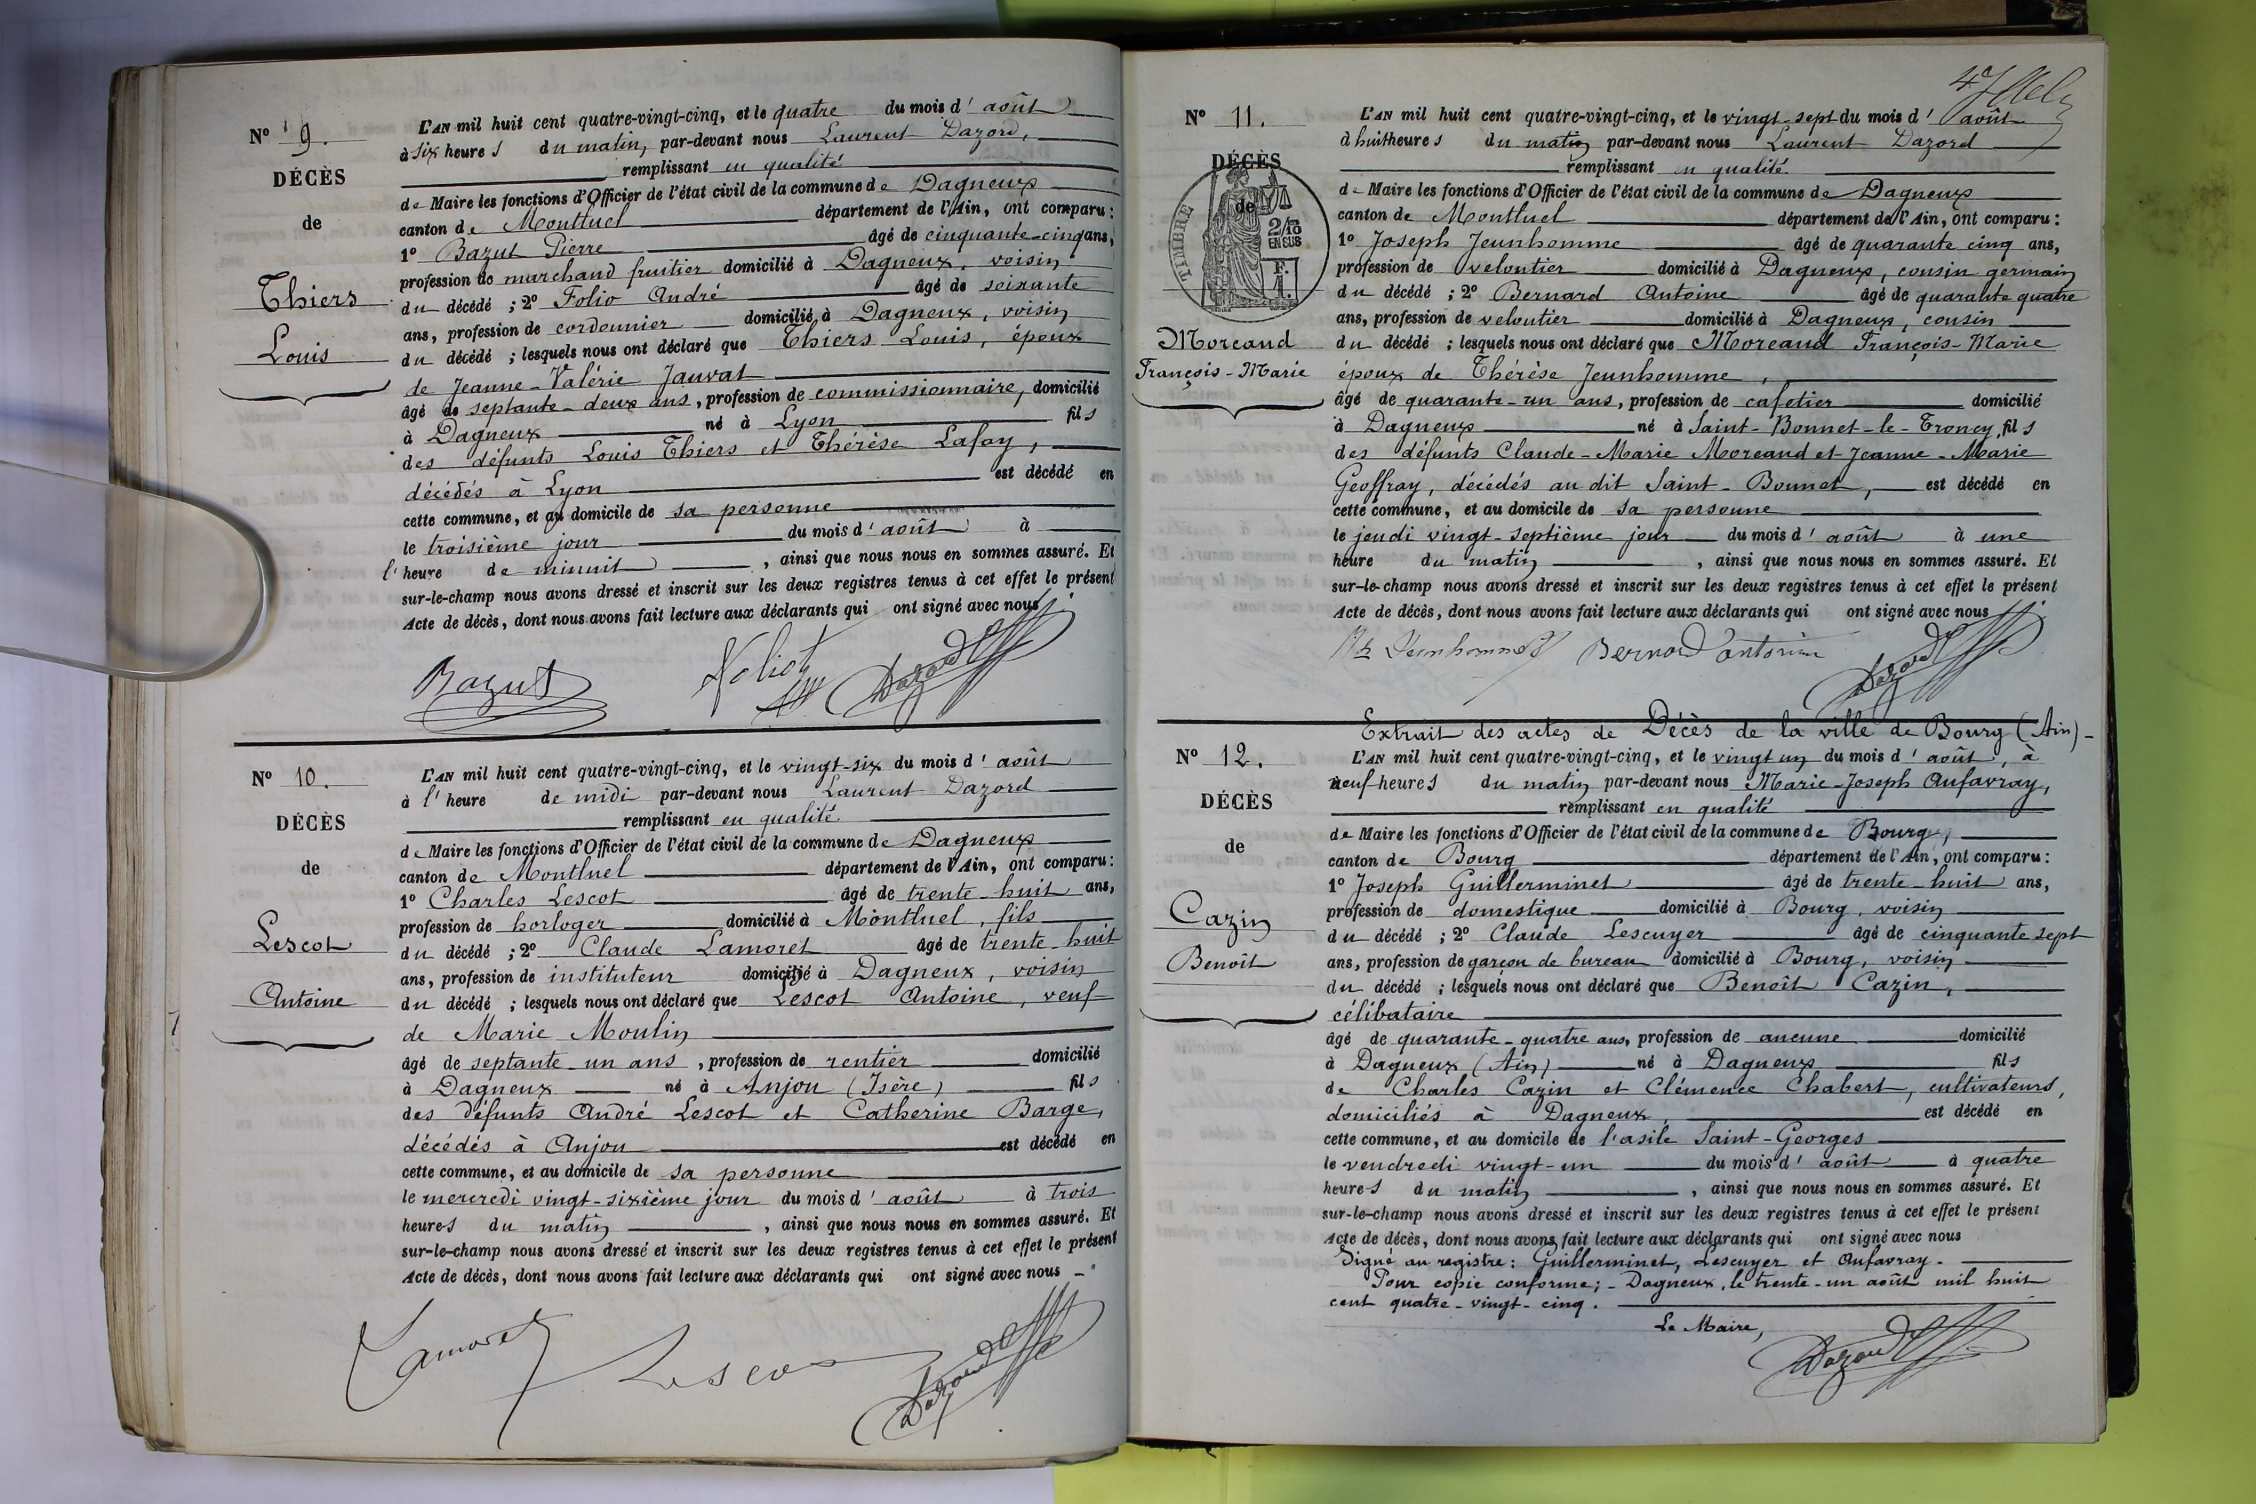 N° 9.
DÉCÈS
de
Thiers
Louis
L'AN mil huit cent quatre-vingt-cinq, et le quatre du mois d'août
à six heures du matin, par-devant nous Laurent Dazord,
remplissant en qualité
de Maire les fonctions d'Officier de l'état civil de la commune de Dagneux
canton de Montluel département de l'Ain, ont comparu :
1° Bazut Pierre âgé de cinquante-cinq ans,
profession de marchand fruitier domicilié à Dagneux, voisin
du décédé ; 2° Folio André âgé de soixante
ans, profession de cordonnier domicilié à Dagneux, voisin
du décédé ; lesquels nous ont déclaré que Thiers Louis, époux
de Jeanne-Valérie Jauvat
âgé de septante-deux ans, profession de commissionnaire, domicilié
à Dagneux né à Lyon fils
des défunts Louis Thiers et Thérèse Lafay,
décédés à Lyon est décédé en
cette commune, et au domicile de sa personne
le troisième jour du mois d'août à
l'heure de minuit, ainsi que nous nous en sommes assuré. Et
sur-le-champ nous avons dressé et inscrit sur les deux registres tenus à cet effet le présent
Acte de décès, dont nous avons fait lecture aux déclarants qui ont signé avec nous.
Bazut Foliot Dazord
N° 10.
DÉCÈS
de
Lescot
Antoine
L'AN mil huit cent quatre-vingt-cinq, et le vingt-six du mois d'août
à l'heure de midi par-devant nous Laurent Dazord
remplissant en qualité.
de Maire les fonctions d'Officier de l'état civil de la commune de Dagneux
canton de Montluel département de l'Ain, ont comparu :
1° Charles Lescot âgé de trente-huit ans,
profession de horloger domicilié à Montluel, fils
du décédé ; 2° Claude Lamoret âgé de trente-huit
ans, profession de instituteur domicilié à Dagneux, voisin
du décédé ; lesquels nous ont déclaré que Lescot Antoine, veuf
de Marie Moulin
âgé de septante-un ans, profession de rentier domicilié
à Dagneux né à Anjou (Isère) fils
des défunts André Lescot et Catherine Barge,
décédés à Anjou est décédé en
cette commune, et au domicile de sa personne
le mercredi vingt-sixième jour du mois d'août à trois
heures du matin, ainsi que nous nous en sommes assuré. Et
sur-le-champ nous avons dressé et inscrit sur les deux registres tenus à cet effet le présent
Acte de décès, dont nous avons fait lecture aux déclarants qui ont signé avec nous -
Lamoret Lescot Dazord
N° 11.
DÉCÈS
de
TIMBRE
2/10
EN SUS
F.
1.
Moreand
François-Marie
L'AN mil huit cent quatre-vingt-cinq, et le vingt-sept du mois d'août
à huit heures du matin par-devant nous Laurent Dazord
remplissant en qualité.
de Maire les fonctions d'Officier de l'état civil de la commune de Dagneux
canton de Montluel département de l'Ain, ont comparu :
1° Joseph Jeunhomme âgé de quarante cinq ans,
profession de veloutier domicilié à Dagneux, cousin germain
du décédé ; 2° Bernard Antoine âgé de quarante quatre
ans, profession de veloutier domicilié à Dagneux, cousin
du décédé ; lesquels nous ont déclaré que Moreand François-Marie
époux de Thérèse Jeunhomme,
âgé de quarante-un ans, profession de cafetier domicilié
à Dagneux né à Saint-Bonnet-le-Troncy, fils
des défunts Claude-Marie Moreand et Jeanne-Marie
Geoffray, décédés au dit Saint-Bonnet, est décédé en
cette commune, et au domicile de sa personne
le jeudi vingt-septième jour du mois d'août à une
heure du matin, ainsi que nous nous en sommes assuré. Et
sur-le-champ nous avons dressé et inscrit sur les deux registres tenus à cet effet le présent
Acte de décès, dont nous avons fait lecture aux déclarants qui ont signé avec nous.
Jeunhomme Bernard antoine Dazord
Extrait des actes de Décès de la ville de Bourg (Ain) -
N° 12.
DÉCÈS
de
Cazin
Benoît
L'AN mil huit cent quatre-vingt-cinq, et le vingt un du mois d'août, à
neuf heures du matin par-devant nous Marie-Joseph Aufavray,
remplissant en qualité
de Maire les fonctions d'Officier de l'état civil de la commune de Bourg,
canton de Bourg département de l'Ain, ont comparu :
1° Joseph Guillerminet âgé de trente-huit ans,
profession de domestique domicilié à Bourg, voisin
du décédé ; 2° Claude Lescuyer âgé de cinquante sept
ans, profession de garçon de bureau domicilié à Bourg, voisin
du décédé ; lesquels nous ont déclaré que Benoît Cazin,
célibataire
âgé de quarante-quatre ans, profession de aucune domicilié
à Dagneux (Ain) né à Dagneux fils
de Charles Cazin et Clémence Chabert, cultivateurs,
domiciliés à Dagneux, est décédé en
cette commune, et au domicile de l'asile Saint-Georges
le vendredi vingt-un du mois d'août à quatre
heures du matin, ainsi que nous nous en sommes assuré. Et
sur-le-champ nous avons dressé et inscrit sur les deux registres tenus à cet effet le présent
Acte de décès, dont nous avons fait lecture aux déclarants qui ont signé avec nous
Signé au registre : Guillerminet, Lescuyer et Aufavray.
Pour copie conforme ; - Dagneux, le trente-un août mil huit
cent quatre-vingt-cinq.
Le Maire,
Dazord